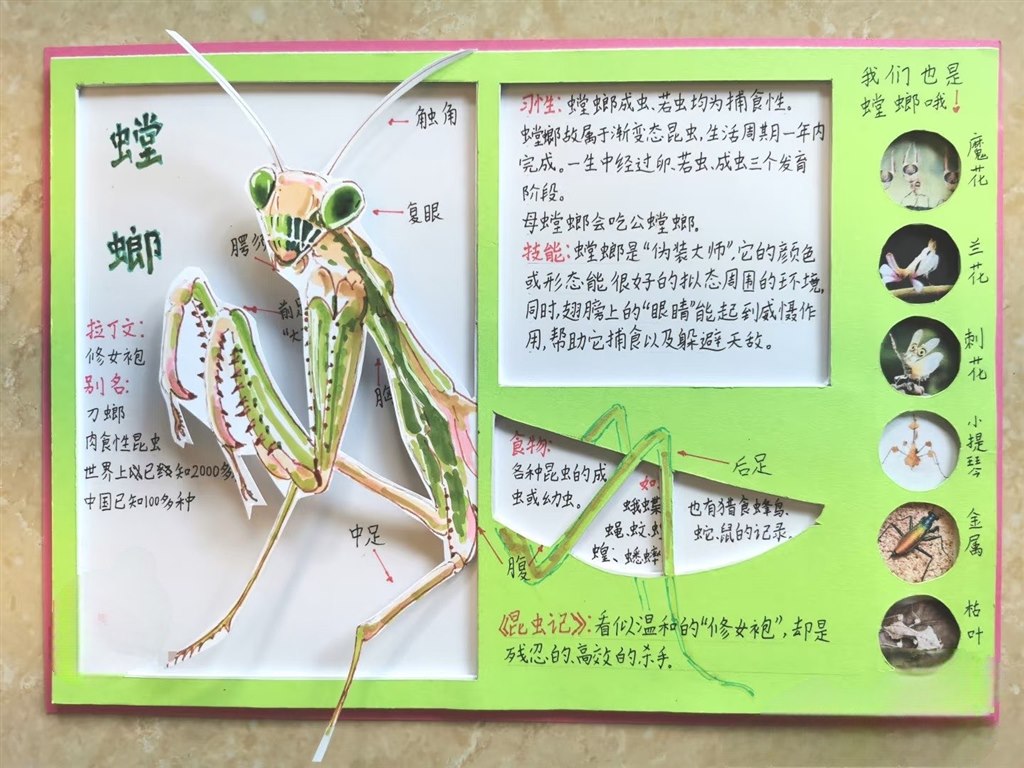 螳
螂
触角
复眼
中足
拉丁文:
修女袍
别名:
刀螂
肉食性昆虫
世界上已知2000多
中国已知100多种
习性: 螳螂成虫、若虫均为捕食性。
螳螂故属于渐变态昆虫, 生活周期一年内
完成。一生中经过卵、若虫、成虫三个发育
阶段。
母螳螂会吃公螳螂。
技能: 螳螂是“伪装大师”, 它的颜色
或形态能很好的拟态周围的环境,
同时, 翅膀上的“眼睛”能起到威慑作
用, 帮助它捕食以及躲避天敌。
食物:
各种昆虫的成
虫或幼虫。
如
蛾蝶
蝇、蚊、
蝗、蟋蟀
也有猎食蜂鸟、
蛇、鼠的记录。
后足
腹
《昆虫记》: 看似温和的“修女袍”, 却是
残忍的、高效的杀手。
我们也是
螳螂哦!
魔花
兰花
刺花
小提琴
金属
枯叶